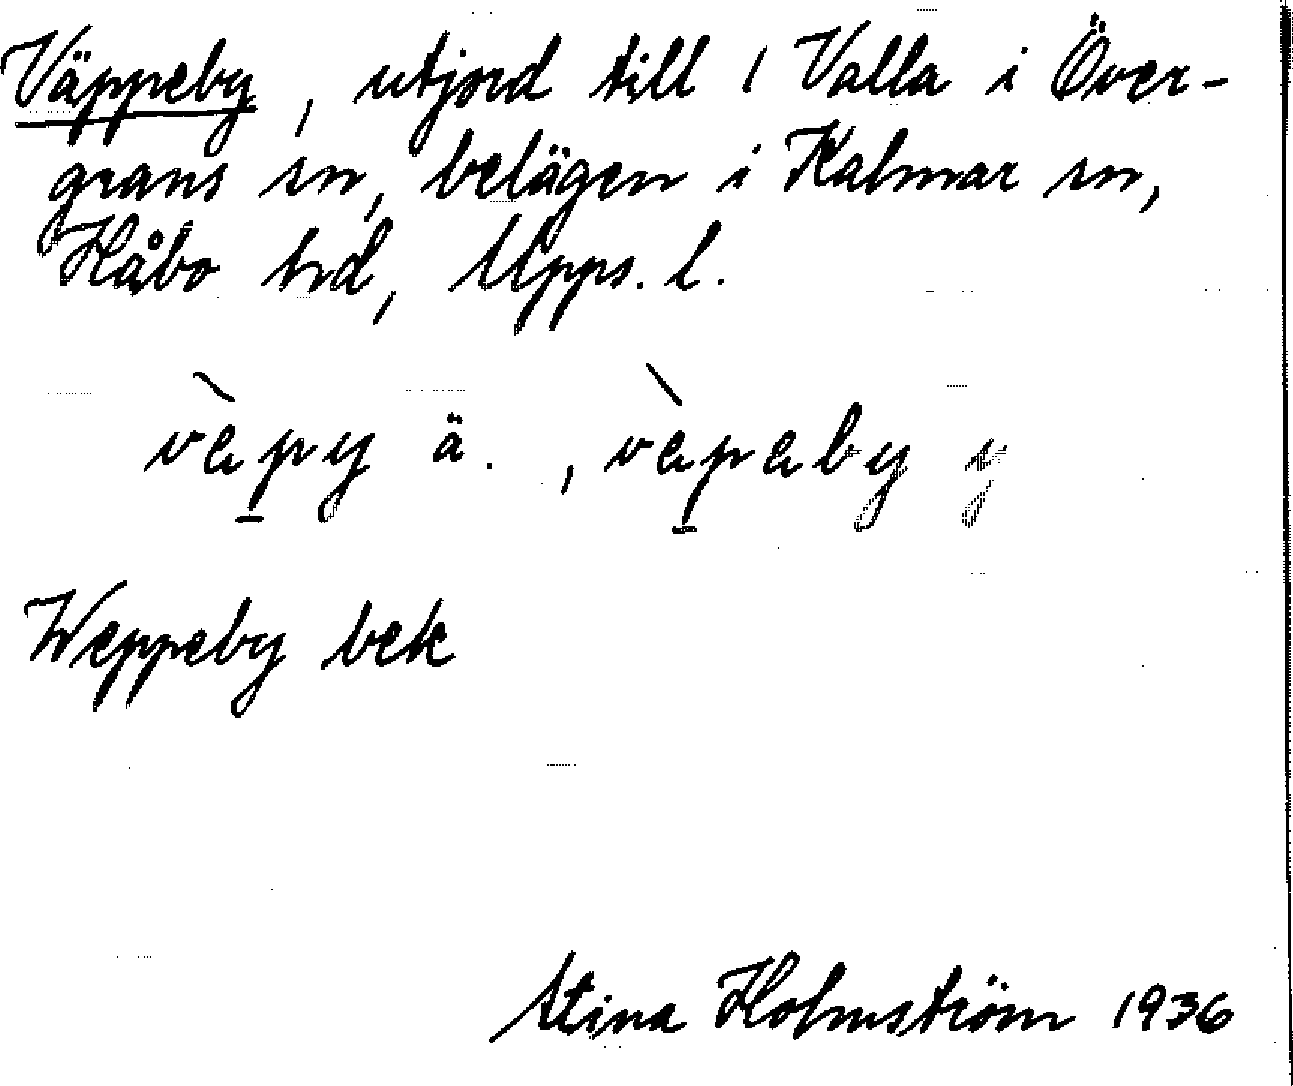 Väppeby, utjord till 1 Valla i Över-
grans sn, belägen i Kalmar sn,
Håbo hd, Upps. l.
vàpy ä., vàpaby y
Weppeby bek
Stina Holmström 1936